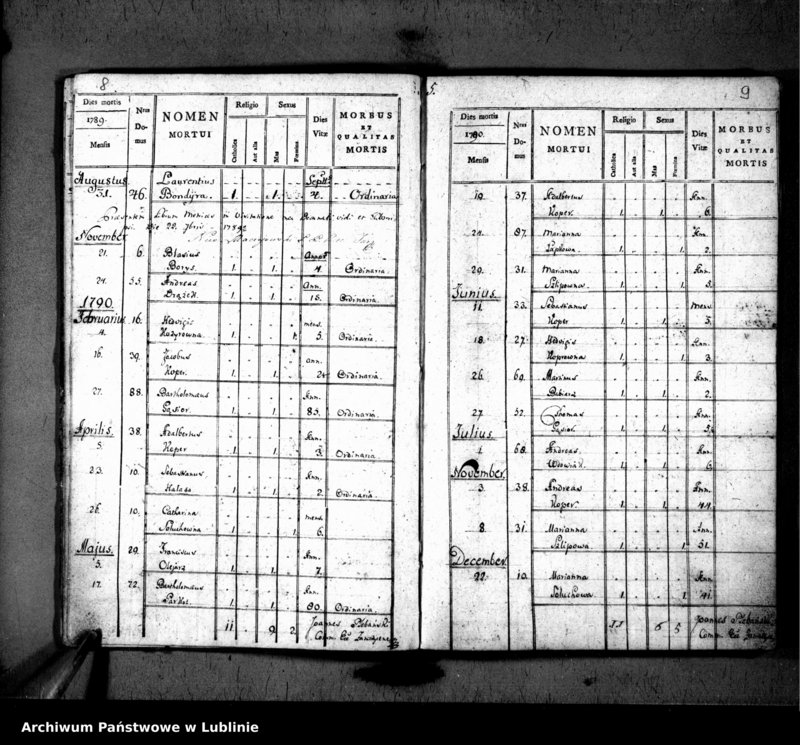 8
Dies mortis
1789.
Mensis
Nrus Domus
NOMEN MORTUI
Religio
Catholica
Aut alia
Sexus
Mas
Femina
Dies Vitæ
MORBUS ET QUALITAS MORTIS
Augustus Laurentius Septi.
31. 46. Bondyra. 1. 1. 4. Ordinaria
November
21. 6. Blasius
Borys. 1. 1. 4. Ordinaria
24. 55. Andreas Ann.
1. 1. 15. Ordinaria.
1790.
Februarius 16. Hedvigis mens.
4. 1. 1. 5. Ordinaria.
16. 39. Jacobus ann.
Koper. 1. 1. Ordinaria.
27. 88. Bartholomæus Ann.
Gąsior. 1. 1. 85. Ordinaria.
Aprilis. 38. Adalbertus Ann.
5. Koper 1. 1. 3. Ordinaria
23. 10. Sebastianus Ann.
Halasa 1. 1. 2. Ordinaria.
26. 10. Catharina mens.
1. 1. 6.
Majus. 29. Franciscus Ann.
5. Olejarz 1. 1. 7.
17. 72. Bartholomæus Ann.
1. 1. 80. Ordinaria.
11 9 2 Joannes
Comm.
5.
9
Dies mortis
1790.
Mensis
Nrus Domus
NOMEN MORTUI
Religio
Catholica
Aut alia
Sexus
Mas
Femina
Dies Vitæ
MORBUS ET QUALITAS MORTIS
19. 37. Adalbertus Ann.
Koper. 1. 1. 6.
24. 87. Marianna Ann.
1. 1. 2.
29. 31. Marianna Ann.
Szlipowna. 1. 1. 5.
Junius.
11. 33. Sebastianus Mens
Koper 1. 1. 5.
18. 27. Hedvigis Ann.
Koprowna 1. 1. 3.
26. 69. Martinus Ann.
1. 1. 2.
27. 52. Thomas Ann.
Gąsior. 1. 1. 5.
Julius.
1. 68. Andreas Ann.
1. 1. 6.
November.
3. 38. Andreas Ann.
Koper. 1. 1. 44.
8. 31. Marianna Ann.
Szlipowa. 1. 1. 51.
December.
22. 10. Marianna Ann
1. 1 41.
11 6 5 Joannes
Comm.
Archiwum Państwowe w Lublinie